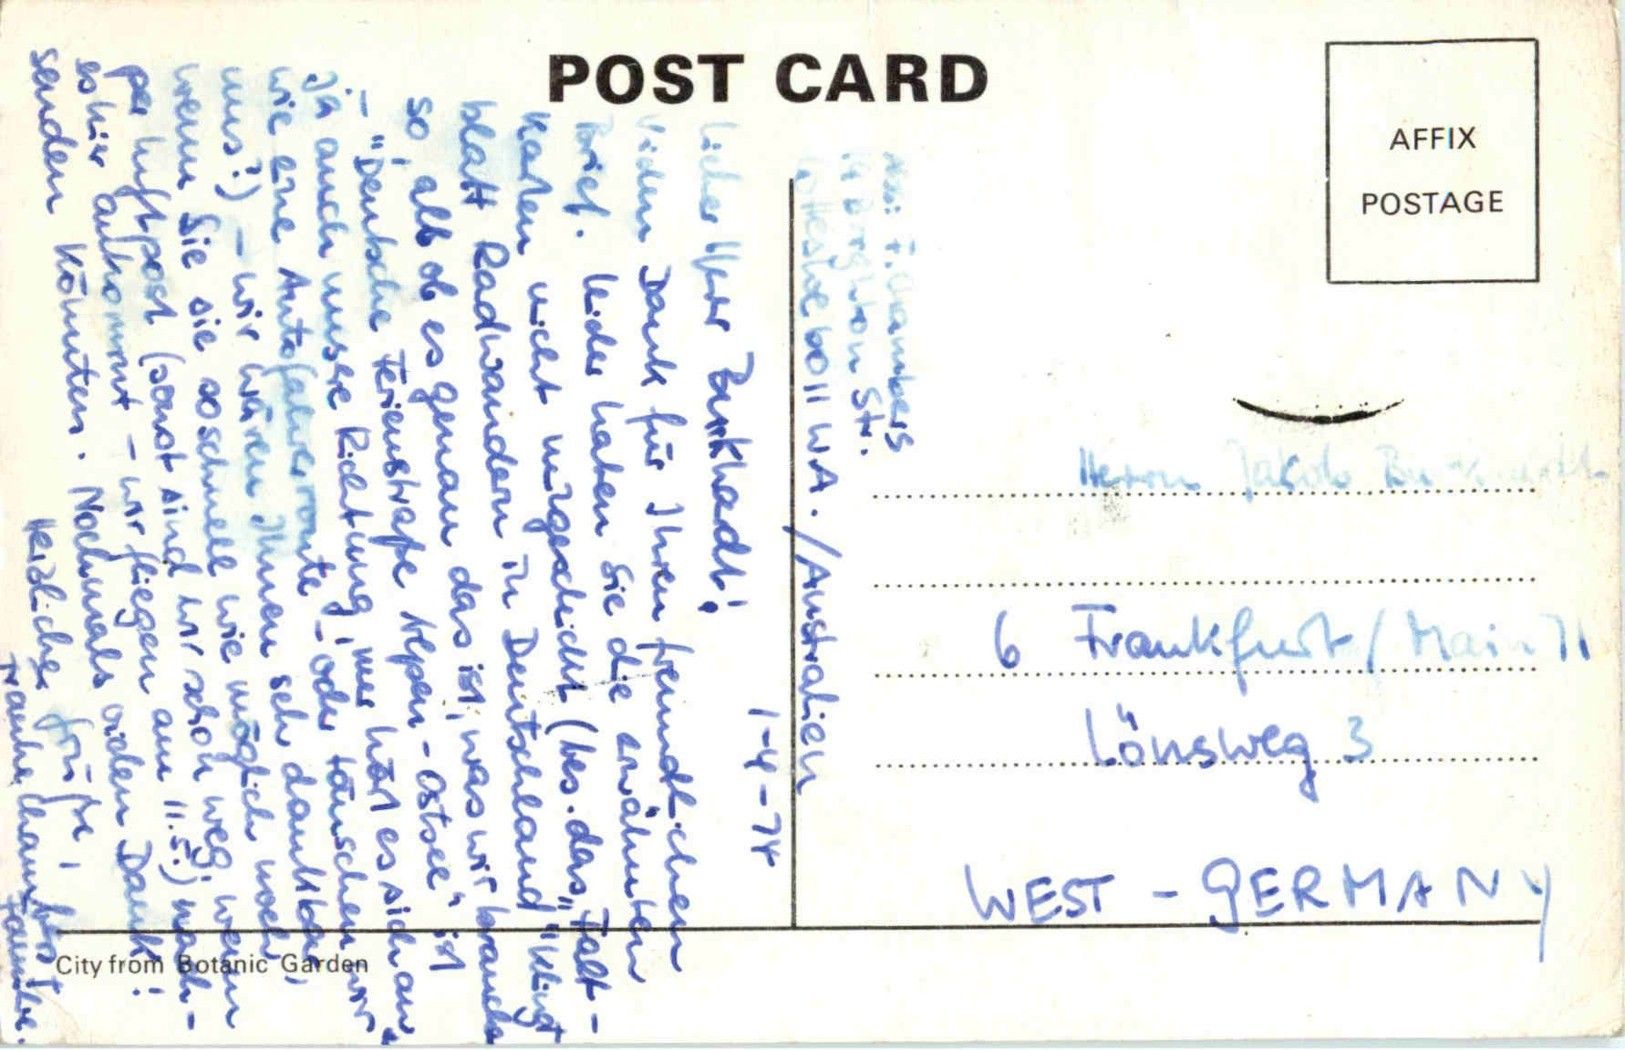 POST CARD
AFFIX
POSTAGE
1-4-74
Lieber Herr Burkhardt!
Vielen Dank für Ihren freundlichen
Brief. Leider haben Sie die erwähnten
Karten nicht mitgeschickt (bes. das "Falt-
blatt Radwandern in Deutschland" klingt
so, als ob es genau das ist, was wir brauchen
- "Deutsche Ferienstraße Alpen-Ostsee" ist
ja auch unsere Richtung, nur hört es sich an
wie eine Autofahrerroute - oder täuschen wir
uns?) - wir wären Ihnen sehr dankbar,
wenn Sie sie so schnell wie möglich noch
per Luftpost (sonst sind wir schon weg, wenn
es hier ankommt - wir fliegen am 11.5.!) nach-
senden könnten. Nochmals vielen Dank!
Herzliche Grüße,
Frauke Chambers
Abs: F. Chambers
Str.
6011 W.A. / Australien
Herrn Jakob
6 Frankfurt / Main 71
Lönsweg 3
WEST - GERMANY
City from Botanic Garden